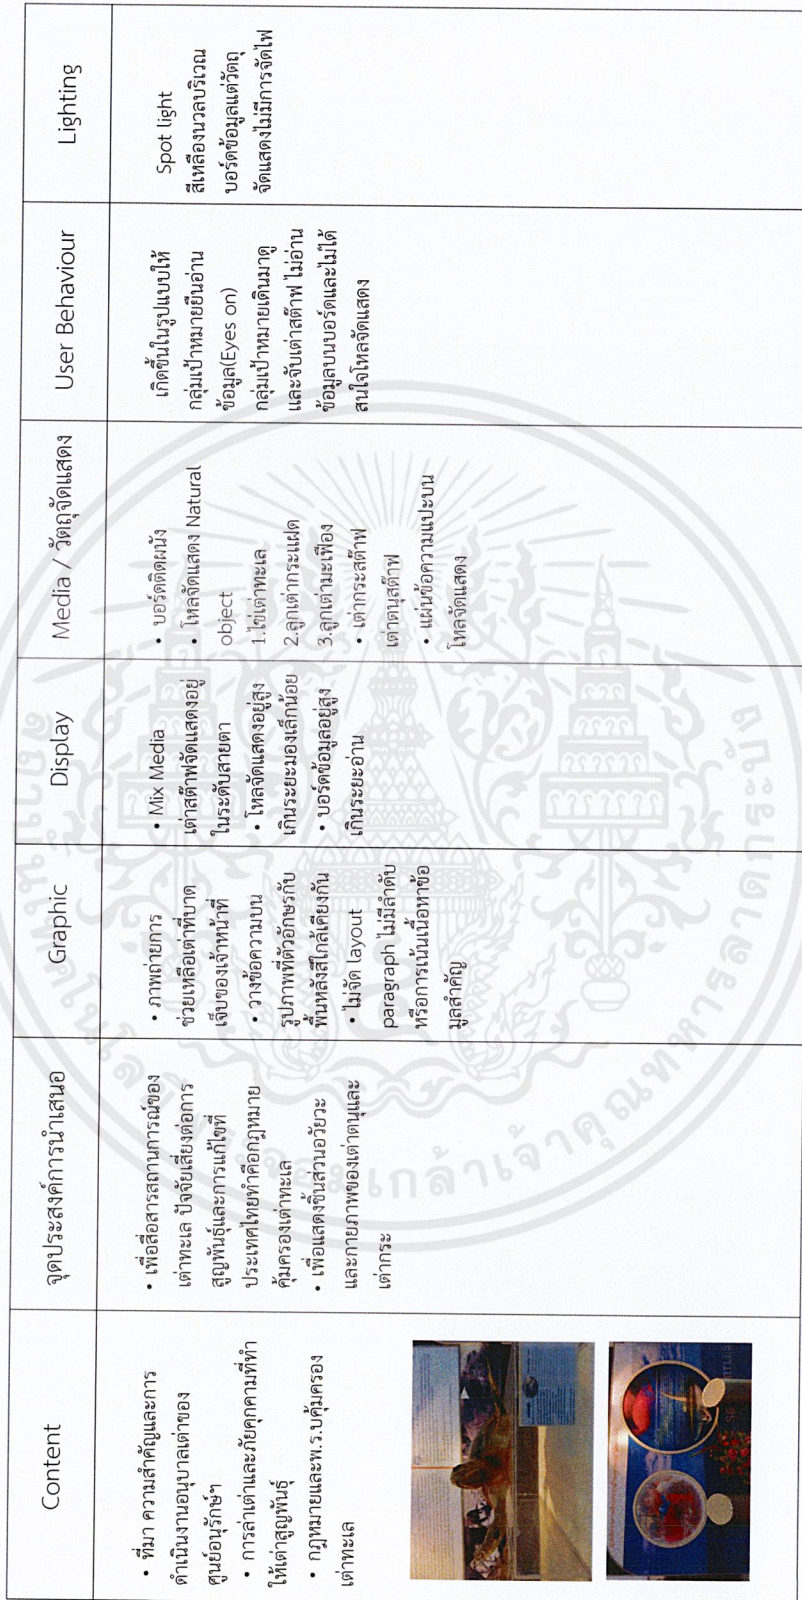 Content
• ที่มา ความสำคัญและการ
ดำเนินงานอนุบาลเต่าของ
ศูนย์อนุรักษ์ฯ
• การล่าเต่าและภัยคุกคามที่ทำ
ให้เต่าสูญพันธุ์
• กฎหมายและพ.ร.บคุ้มครอง
เต่าทะเล
จุดประสงค์การนำเสนอ
• เพื่อสื่อสารสถานการณ์ของ
เต่าทะเล ปัจจัยเสี่ยงต่อการ
สูญพันธุ์และการแก้ไขที่
ประเทศไทยทำคือกฎหมาย
คุ้มครองเต่าทะเล
• เพื่อแสดงชิ้นส่วนอวัยวะ
และกายภาพของเต่าตนุและ
เต่ากระ
Graphic
• ภาพถ่ายการ
ช่วยเหลือเต่าที่บาด
เจ็บของเจ้าหน้าที่
• วางข้อความบน
รูปภาพที่ตัวอักษรกับ
พื้นหลังสีใกล้เคียงกัน
• ไม่จัด layout
paragraph ไม่มีลำดับ
หรือการเน้นเนื้อหาข้อ
มูลสำคัญ
Display
• Mix Media
เต่าสต๊าฟจัดแสดงอยู่
ในระดับสายตา
• โหลจัดแสดงอยู่สูง
เกินระยะมองเล็กน้อย
• บอร์ดข้อมูลอยู่สูง
เกินระยะอ่าน
Media / วัตถุจัดแสดง
• บอร์ดติดผนัง
• โหลจัดแสดง Natural
object
1.ไข่เต่าทะเล
2.ลูกเต่ากระแฝด
3.ลูกเต่ามะเฟือง
• เต่ากระสต๊าฟ
เต่าตนุสต๊าฟ
• แผ่นข้อความแปะบน
โหลจัดแสดง
User Behaviour
เกิดขึ้นในรูปแบบให้
กลุ่มเป้าหมายยืนอ่าน
ข้อมูล(Eyes on)
กลุ่มเป้าหมายเดินมาดู
และจับเต่าสต๊าฟ ไม่อ่าน
ข้อมูลบนบอร์ดและไม่ได้
สนใจโหลจัดแสดง
Lighting
Spot light
สีเหลืองนวลบริเวณ
บอร์ดข้อมูลแต่วัตถุ
จัดแสดงไม่มีการจัดไฟ